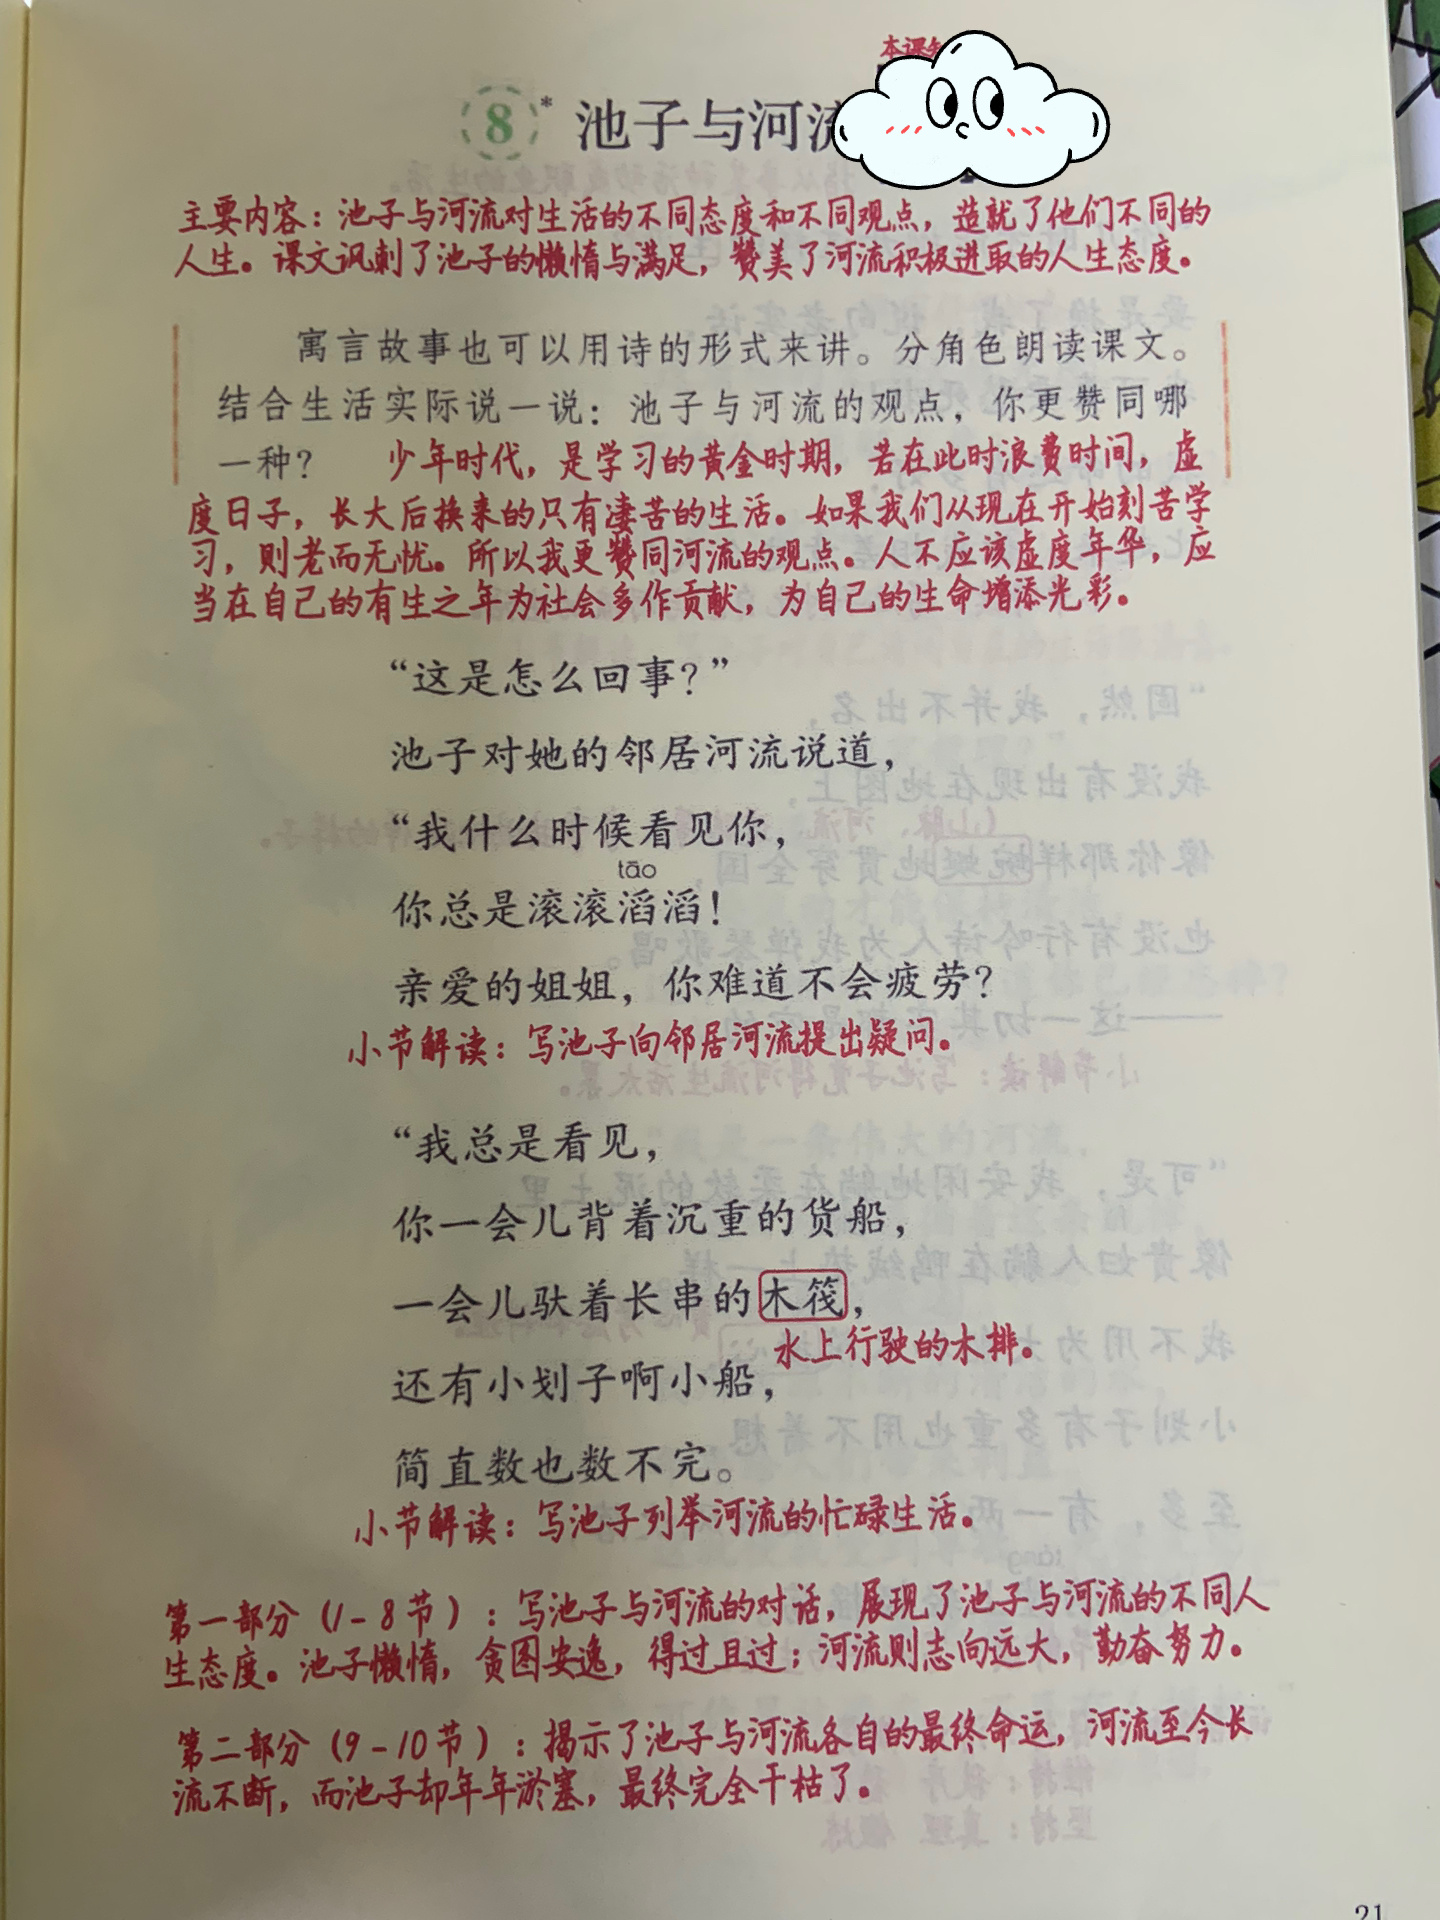 本课
8* 池子与河
主要内容：池子与河流对生活的不同态度和不同观点，造就了他们不同的
人生。课文讽刺了池子的懒惰与满足，赞美了河流积极进取的人生态度。
寓言故事也可以用诗的形式来讲。分角色朗读课文。
结合生活实际说一说：池子与河流的观点，你更赞同哪
一种？ 少年时代，是学习的黄金时期，若在此时浪费时间，虚
度日子，长大后换来的只有凄苦的生活。如果我们从现在开始刻苦学
习，则老而无忧。所以我更赞同河流的观点。人不应该虚度年华，应
当在自己的有生之年为社会多作贡献，为自己的生命增添光彩。
“这是怎么回事？”
池子对她的邻居河流说道，
“我什么时候看见你，
tāo
你总是滚滚滔滔！
亲爱的姐姐，你难道不会疲劳？
小节解读：写池子向邻居河流提出疑问。
“我总是看见，
你一会儿背着沉重的货船，
一会儿驮着长串的木筏，
水上行驶的木排。
还有小划子啊小船，
简直数也数不完。
小节解读：写池子列举河流的忙碌生活。
第一部分（1-8节）：写池子与河流的对话，展现了池子与河流的不同人
生态度。池子懒惰，贪图安逸，得过且过；河流则志向远大，勤奋努力。
第二部分（9-10节）：揭示了池子与河流各自的最终命运，河流至今长
流不断，而池子却年年淤塞，最终完全干枯了。
21